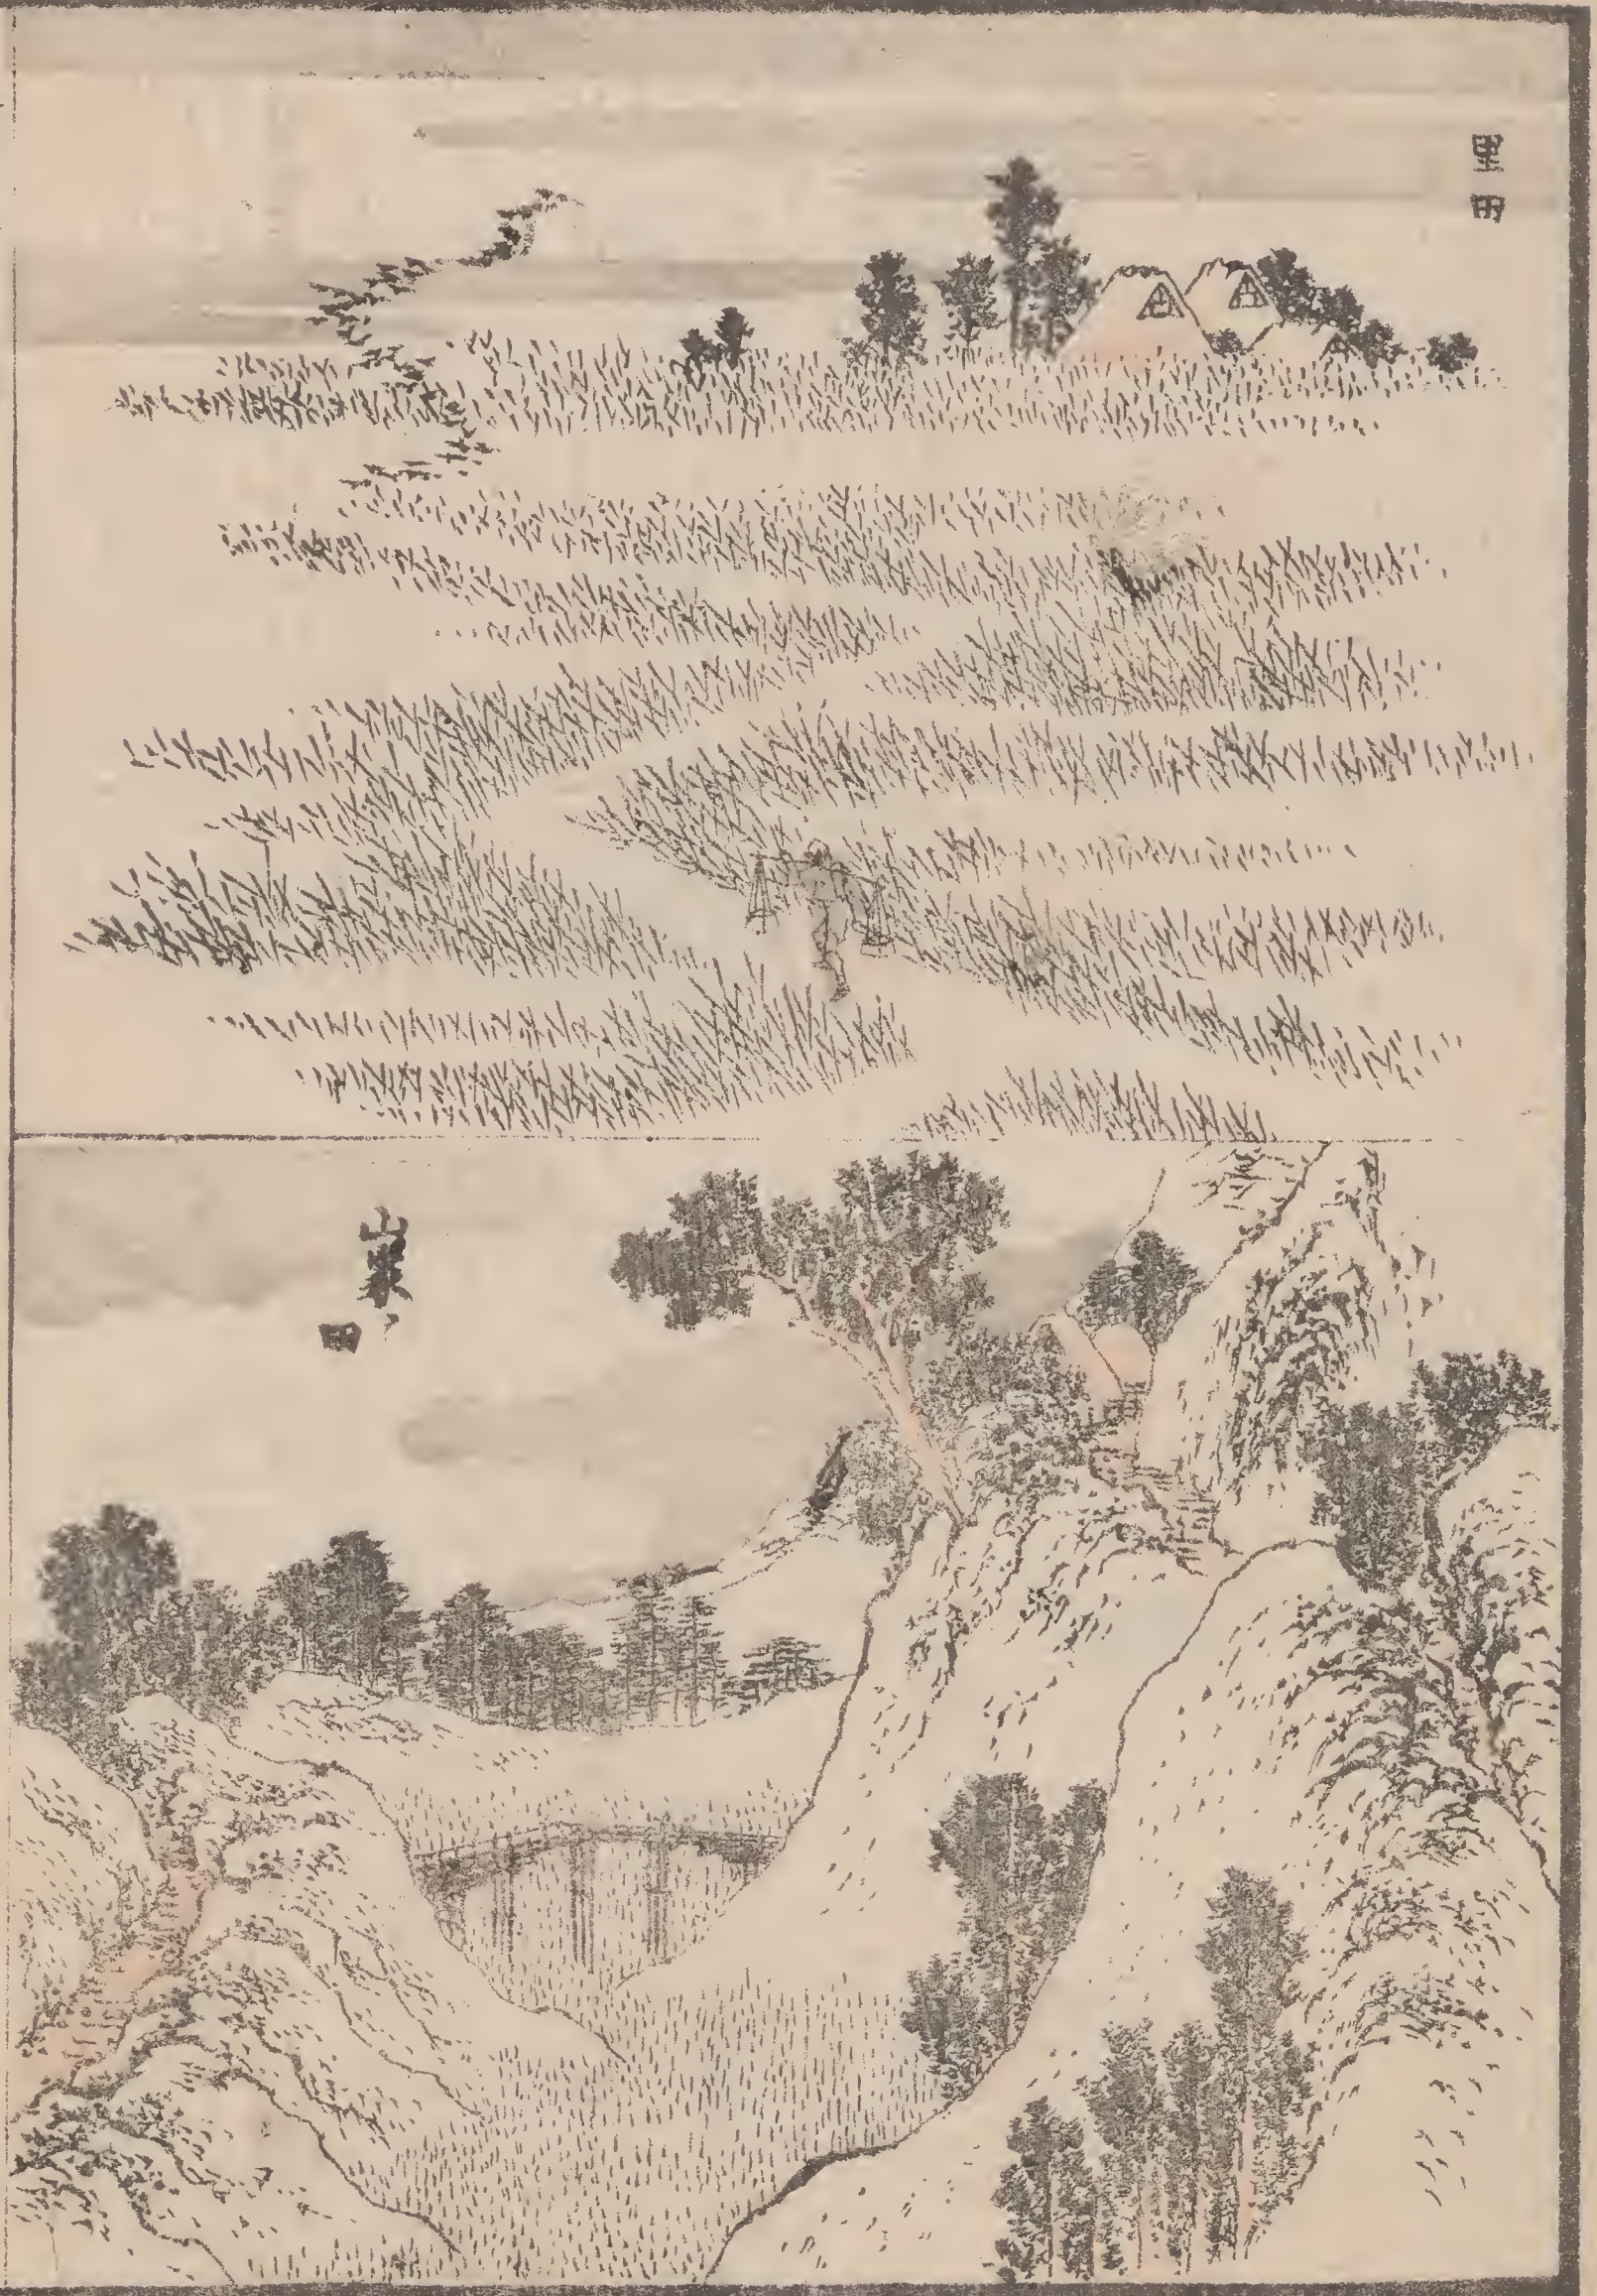 里田
山ノ
田